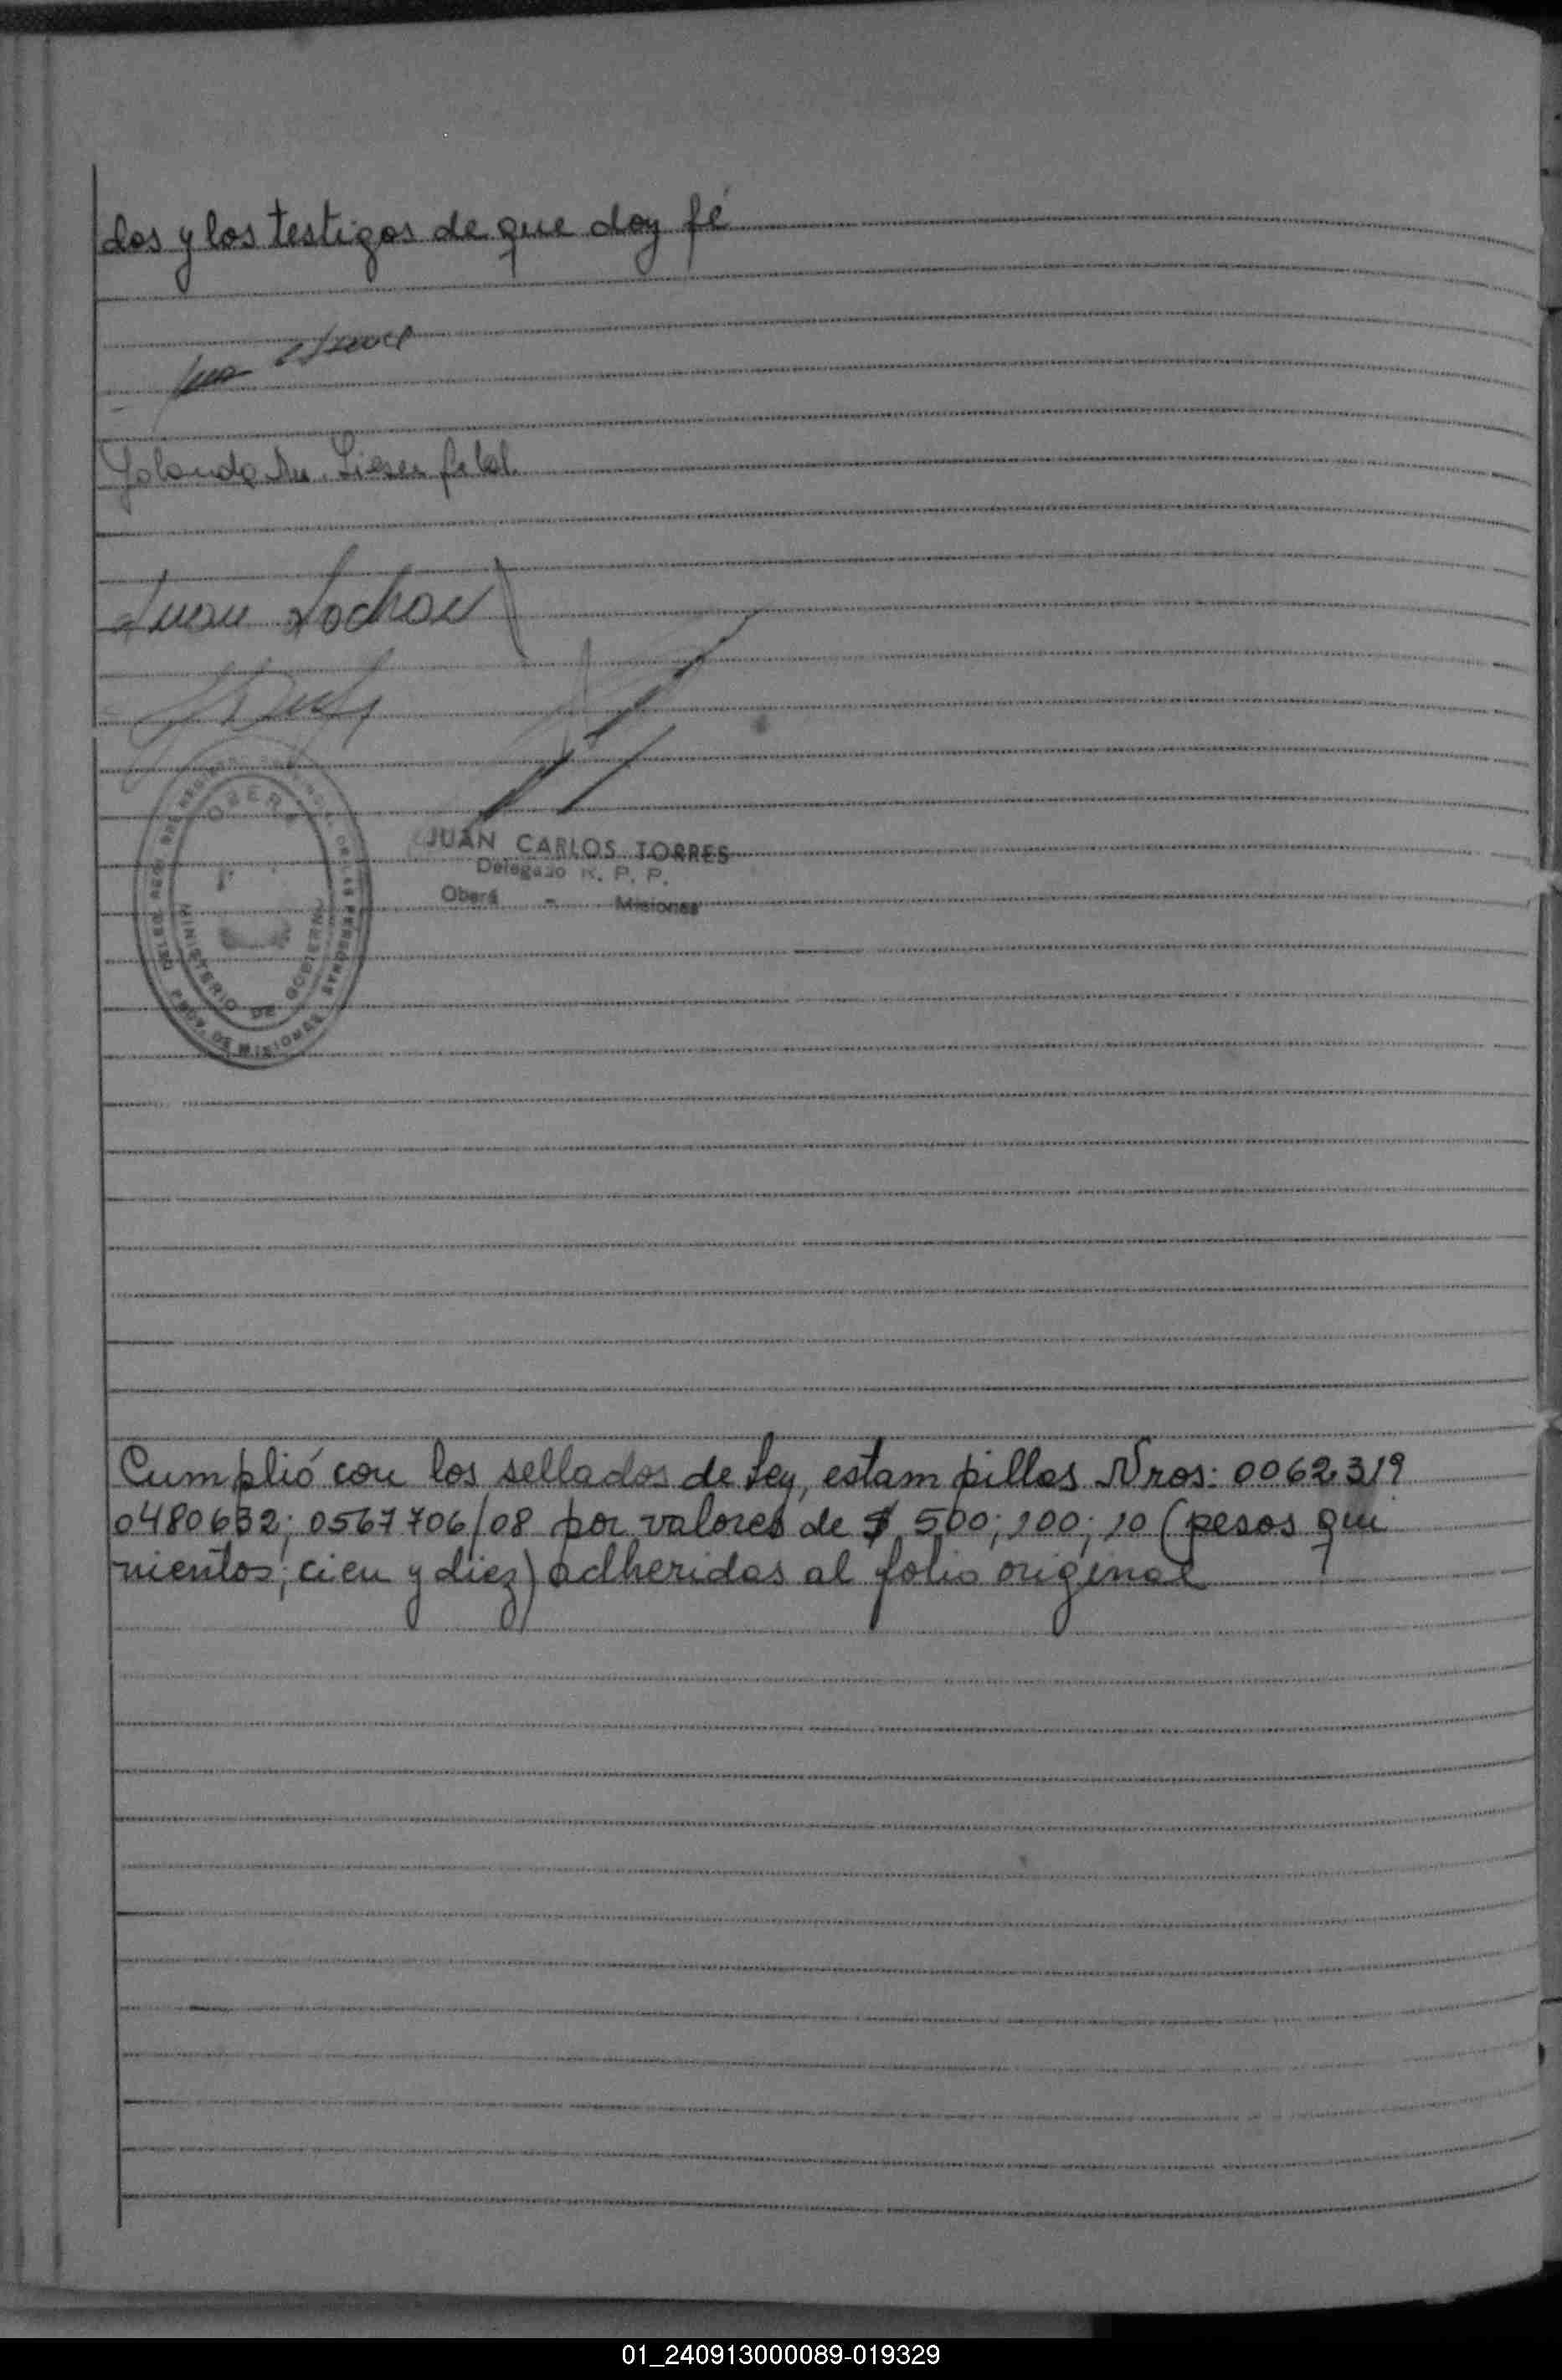 dos y los testigos de que doy fé
Juan
JUAN CARLOS TORRES
Delegado R. P. P.
Oberá - Misiones
OBERA
MINISTERIO DE GOBIERNO
DE LAS PERSONAS
PROV. DE MISIONES
Cumplió con los sellados de Ley, estampillas Nros: 0062319
0480632; 0567706/08 por valores de $ 500; 100; 10 (pesos qui
nientos; cien y diez) adheridas al folio original
01_240913000089-019329